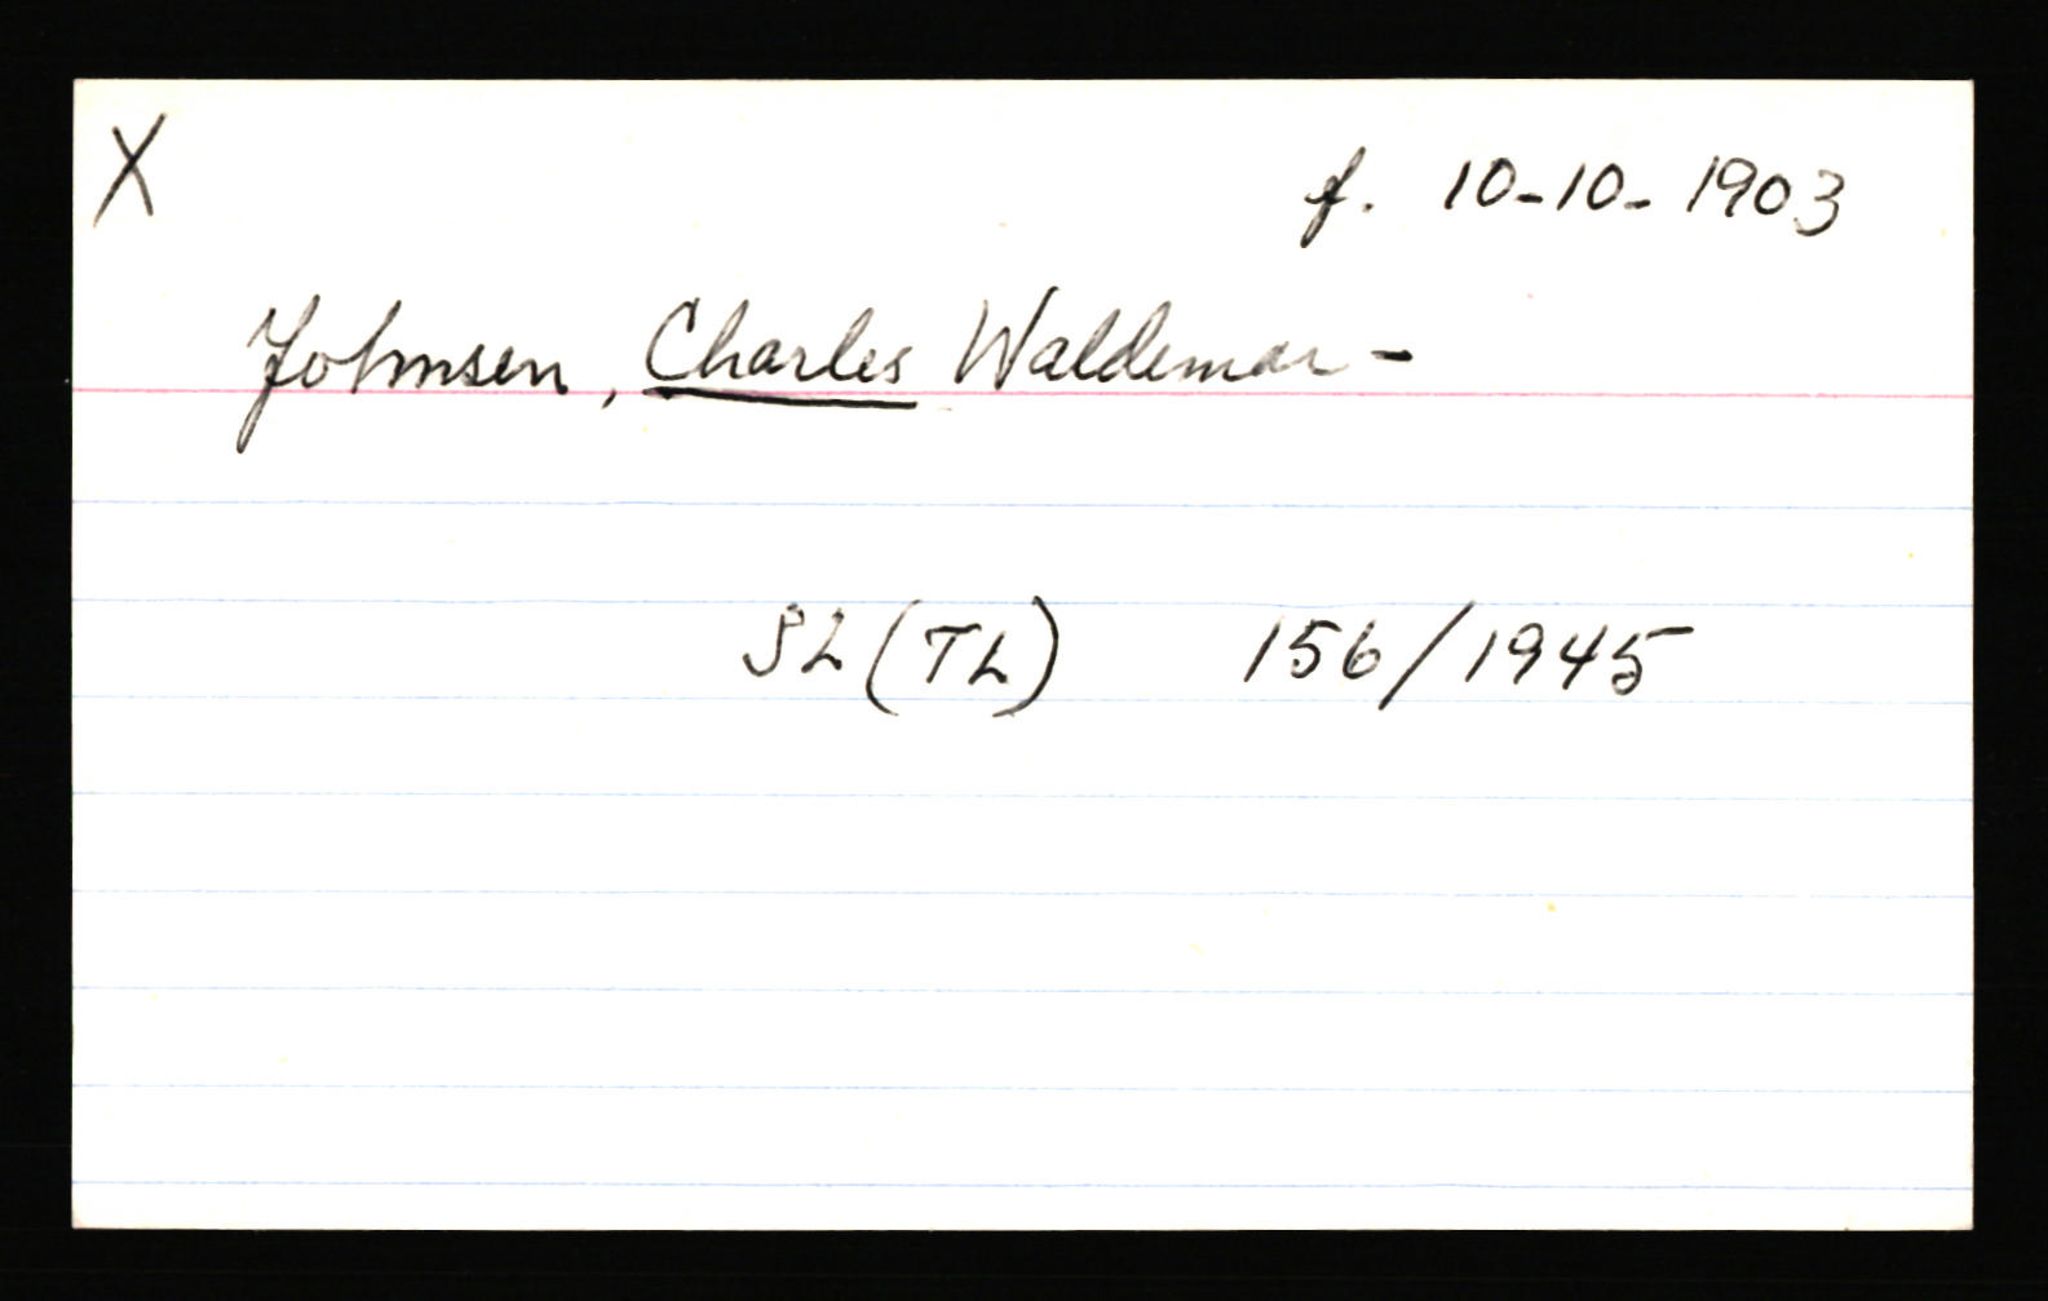 X
f. 10-10-1903
Johnsen, Charles Waldemar -
SL (TL) 156/1945